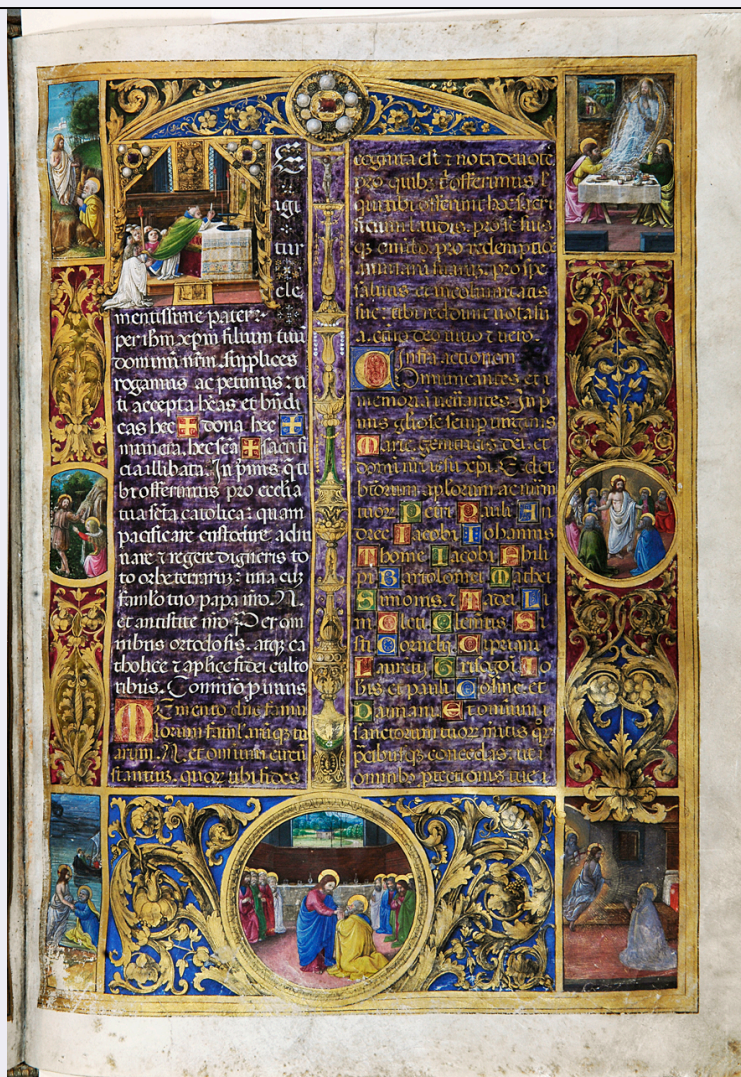 E
igi
tur
cle
mentissime pater:
per ihm xpm filium tuu
dominum nrm supplices
rogamus ac petimus: u
ti accepta heas et bndi
cas hec ✠ dona hec ✠
munera. hec sca ✠ sacrifi
cia illibata. In pmis q ti
bi offerimus pro ecclia
tua scta catolica: quam
pacificare custodire. adu
nare ⁊ regere digneris to
to orbe terraruz: una cuz
famlo tuo papa nro. N.
et antistite nro
nibus ortodosis. atqz ca
tholice ⁊ aplice fidei culto
ribus.
Memento dne famu
lorum famlarūqz tu
arum. N. et omnium circu
stantium. quor tibi fides
cognita est ⁊ nota devotio
pro quibz t offerimus l
qui tibi offerunt hoc sacri
ficium laudis. pro se suis
qz omibz. pro redemptio
animarū suaruz. pro spe
salutis et incolumitatis
sue: tibi reddunt vota su
a. etno deo vivo ⁊ vero.
Infra actionem
Communicantes. et
memoriā venerantes. In p
mis gliose semp virginis
Marie. genitricis dei. et
domini nri ihu xpi. Sed et
btorum aplorum ac mm
tuor. Petri Pauli An
dree Iacobi Iohannis
Thome Iacobi Phili
pi Bartolomei Mathei
Simonis. ⁊ Tadei Li
ni Cleti Clemtis Si
sti Cornelij Cipriani
Lauretij Grisogoi Io
his et pauli Cosme et
Damiani Et omnium
sanctorum tuor mitis qr
pcibusqz concedas. ut i
omnibz ptectionis tue